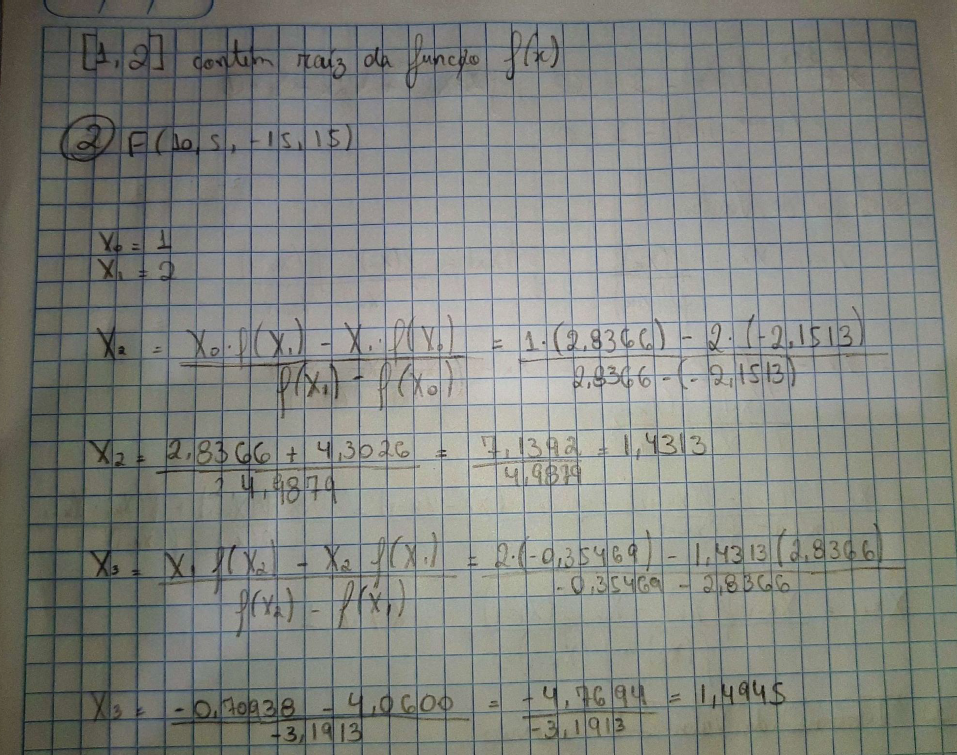 [1,2] contém raíz da função f(x)
② F(10, 5, -15, 15)
X₀ = 1
X₁ = 2
X₂ = X₀·f(X₁) - X₁·f(X₀) / f(X₁) - f(X₀) = 1·(2,8366) - 2·(-2,1513) / 2,8366 - (-2,1513)
X₂ = 2,8366 + 4,3026 / 4,9879 = 7,1392 / 4,9879 = 1,4313
X₃ = X₁ f(X₂) - X₂ f(X₁) / f(X₂) - f(X₁) = 2·(-0,35469) - 1,4313(2,8366) / -0,35469 - 2,8366
X₃ = -0,70938 - 4,0600 / -3,1913 = -4,7694 / -3,1913 = 1,4945